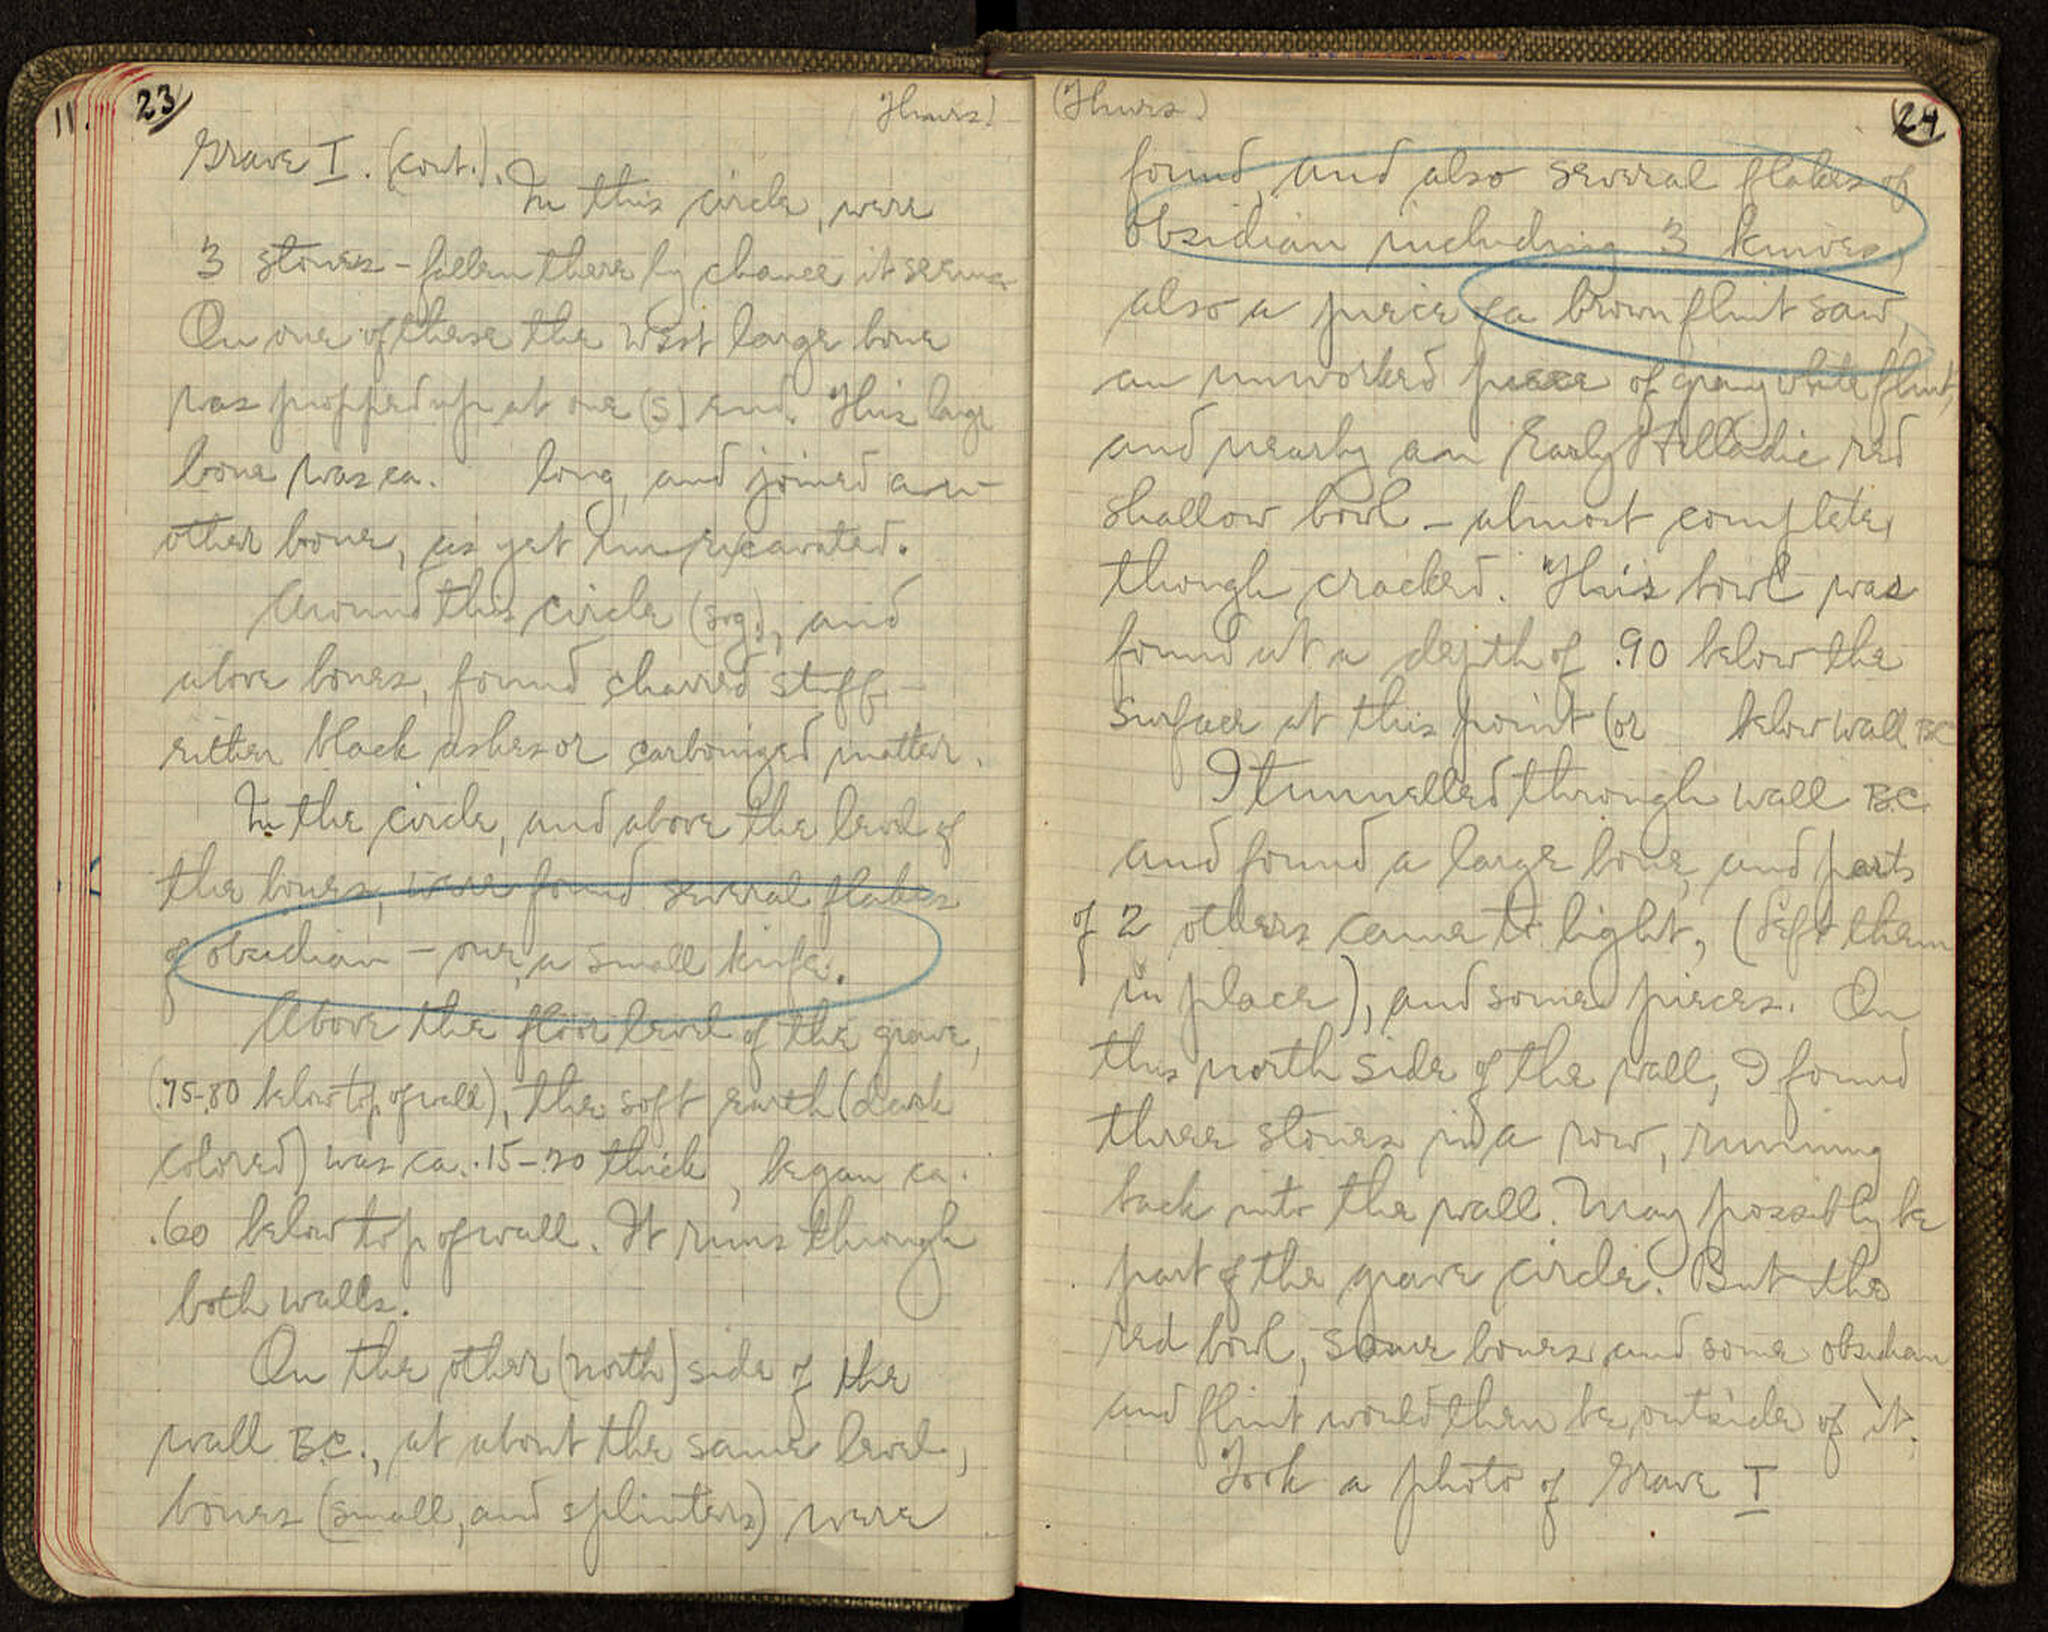 11.
23
Thurs.
Grave I. (cont.).
In this circle, were
3 stones - fallen there by chance it seems
On one of these the west large bone
was propped up at one (S) end. This large
bone was ca. long, and joined an-
other bone, as yet unexcavated.
Around this circle (sog.), and
above bones, found charred stuff -
either black ashes or carbonized matter.
In the circle, and above the level of
the bones, were found several flakes
of obsidian - one, a small knife.
Above the floor level of the grave,
(.75-.80 below top of wall), the soft earth (dark
colored) was ca. .15-.20 thick, began ca.
.60 below top of wall. It runs through
both walls.
On the other (north) side of the
wall B.C., at about the same level,
bones (small, and splinters) were
(Thurs.)
24
found, and also several flakes of
obsidian including 3 knives,
also a piece of a brown flint saw,
an unworked piece of gray white flint,
and nearby an Early Helladic red
shallow bowl - almost complete,
though cracked. This bowl was
found at a depth of .90 below the
surface at this point (or below wall BC
I tunnelled through wall B.C.
and found a large bone, and parts
of 2 others came to light, (left them
in place), and some pieces. On
this north side of the wall, I found
three stones in a row, running
back into the wall. May possibly be
part of the grave circle. But the
red bowl, some bones and some obsidian
and flint would then be outside of it.
Took a photo of Grave I